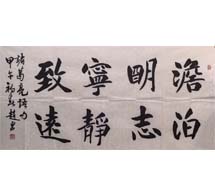 澹泊
明志
寧靜
致遠
諸葛亮語句
甲午初秋趙書